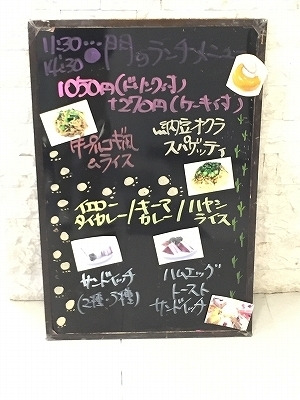 11:30
14:30
のランチメニュー
1050円(ドリンク付)
+270円(ケーキ付)
納豆オクラ
スパゲッティ
ライス
イエロー
タイカレー/キーマ
カレー/ハヤシ
ライス
サンドイッチ
(2種・3種)
ハムエッグ
トースト
サンドイッチ